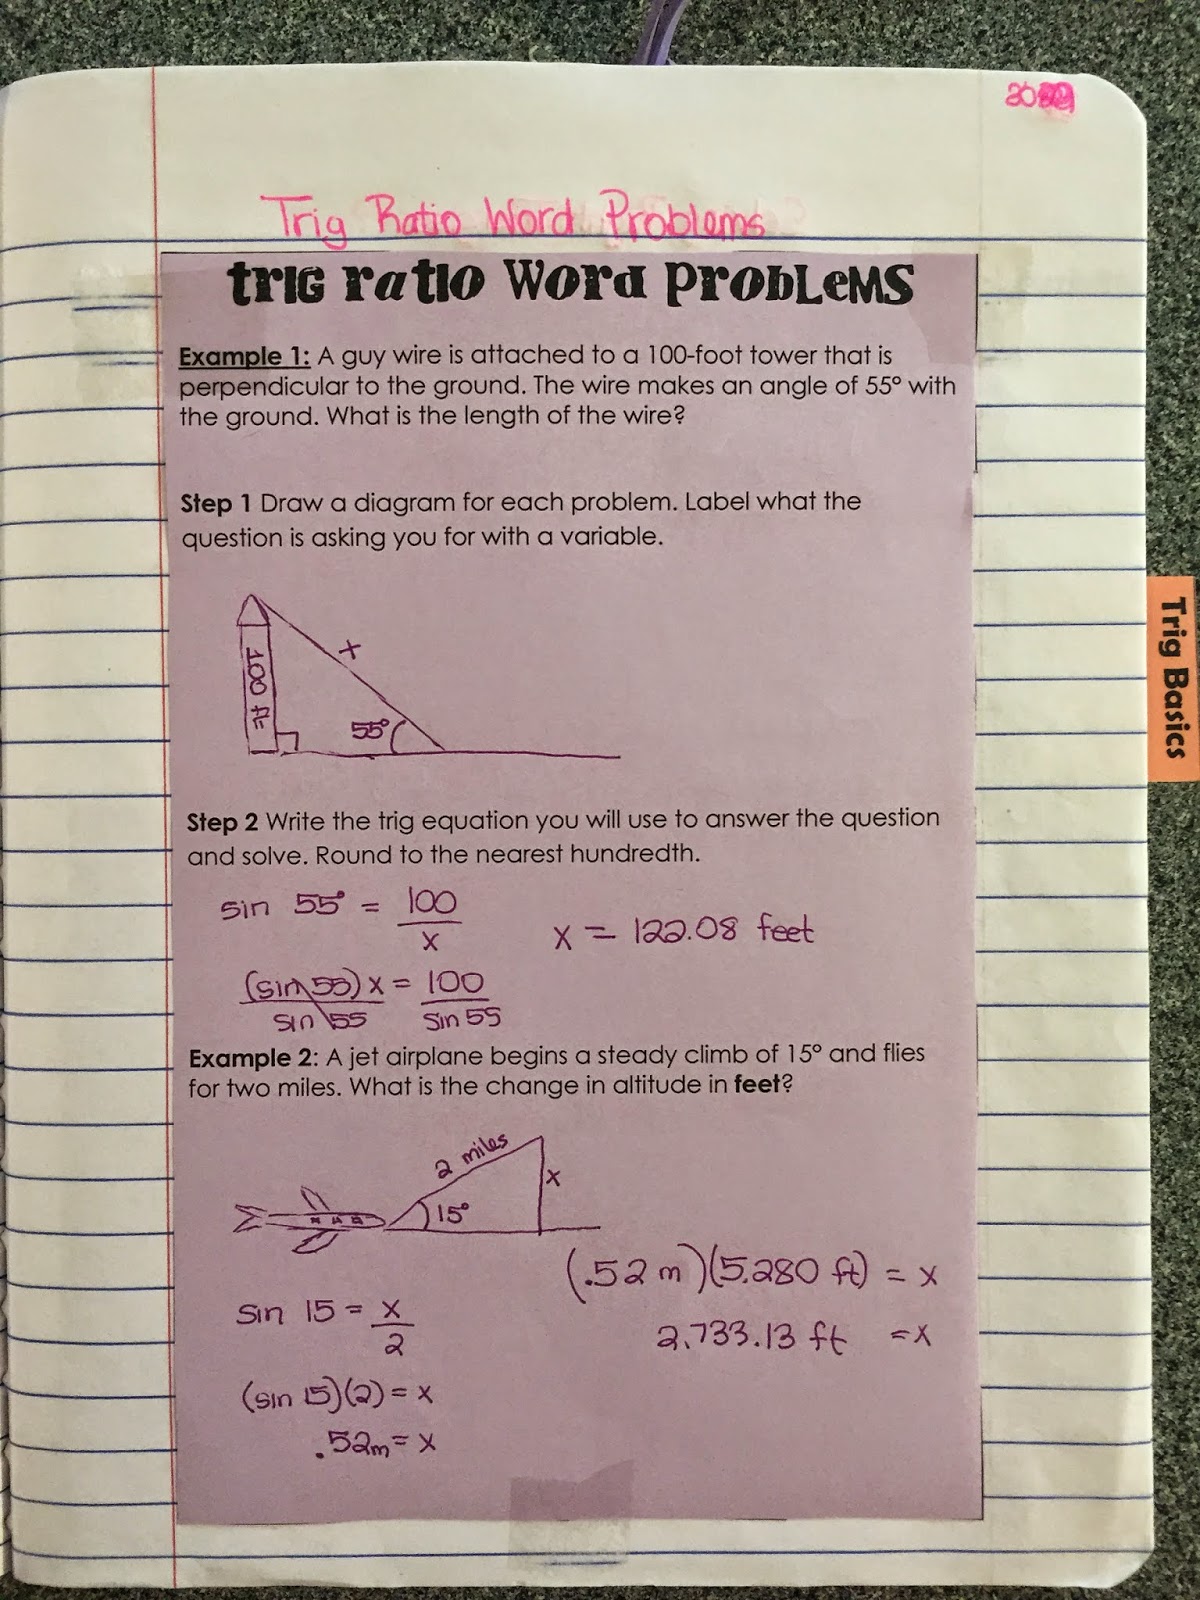 Trig Ratio Word Problems
trig ratio word problems
Example 1: A guy wire is attached to a 100-foot tower that is
perpendicular to the ground. The wire makes an angle of 55° with
the ground. What is the length of the wire?
Step 1 Draw a diagram for each problem. Label what the
question is asking you for with a variable.
100 ft
x
55°
Step 2 Write the trig equation you will use to answer the question
and solve. Round to the nearest hundredth.
sin 55° = 100/x
x = 122.08 feet
(sin 55)x = 100
sin 55 sin 55
Example 2: A jet airplane begins a steady climb of 15° and flies
for two miles. What is the change in altitude in feet?
2 miles
x
15°
sin 15 = x/2
(sin 15)(2) = x
.52m = x
(.52 m)(5,280 ft) = x
2,733.13 ft = x
Trig Basics